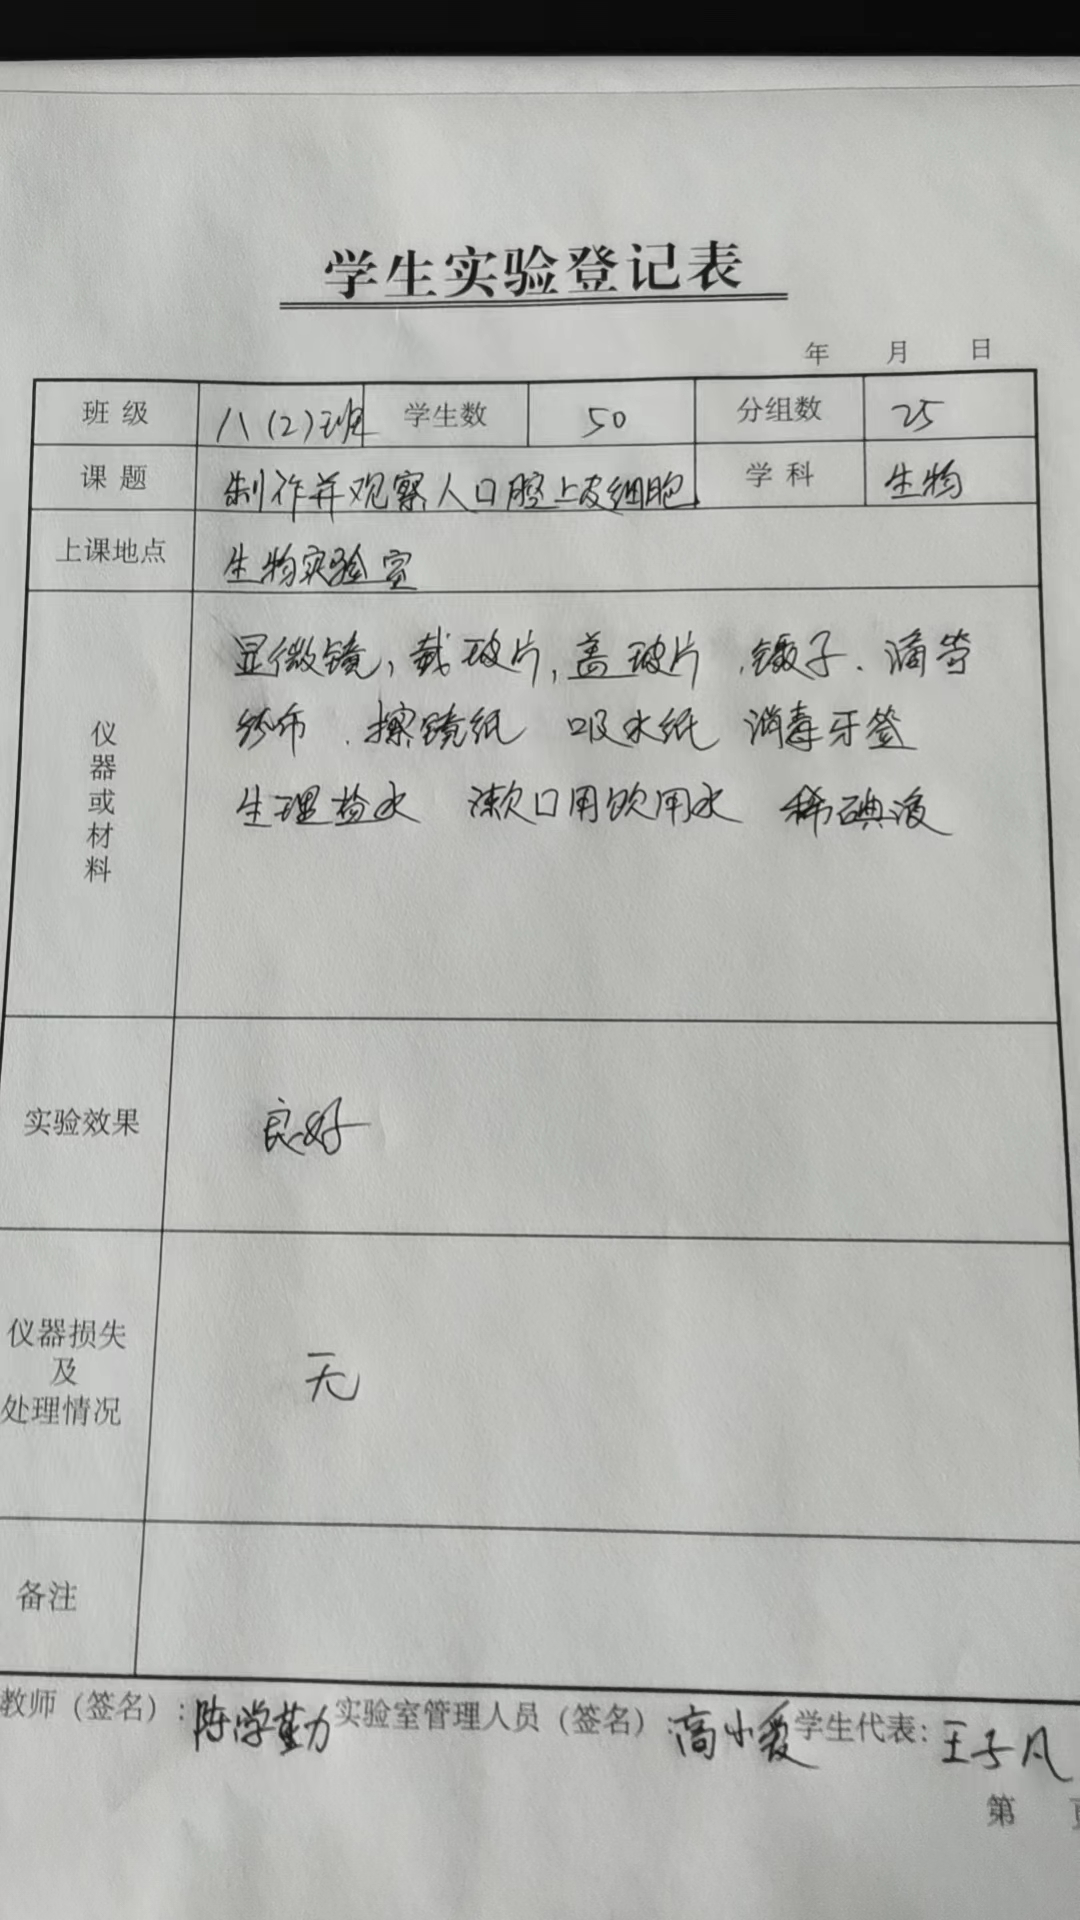 学生实验登记表
年 月 日
班级 八(2)班 学生数 50 分组数 25
课题 制作并观察人口腔上皮细胞 学科 生物
上课地点 生物实验室
仪器或材料
显微镜,载玻片,盖玻片、镊子、滴管
纱布、擦镜纸 吸水纸 消毒牙签
生理盐水 漱口用饮用水 稀碘液
实验效果 良好
仪器损失
及
处理情况
无
备注
教师(签名):陈学勤 实验室管理人员(签名):高小爱 学生代表:王子凡
第